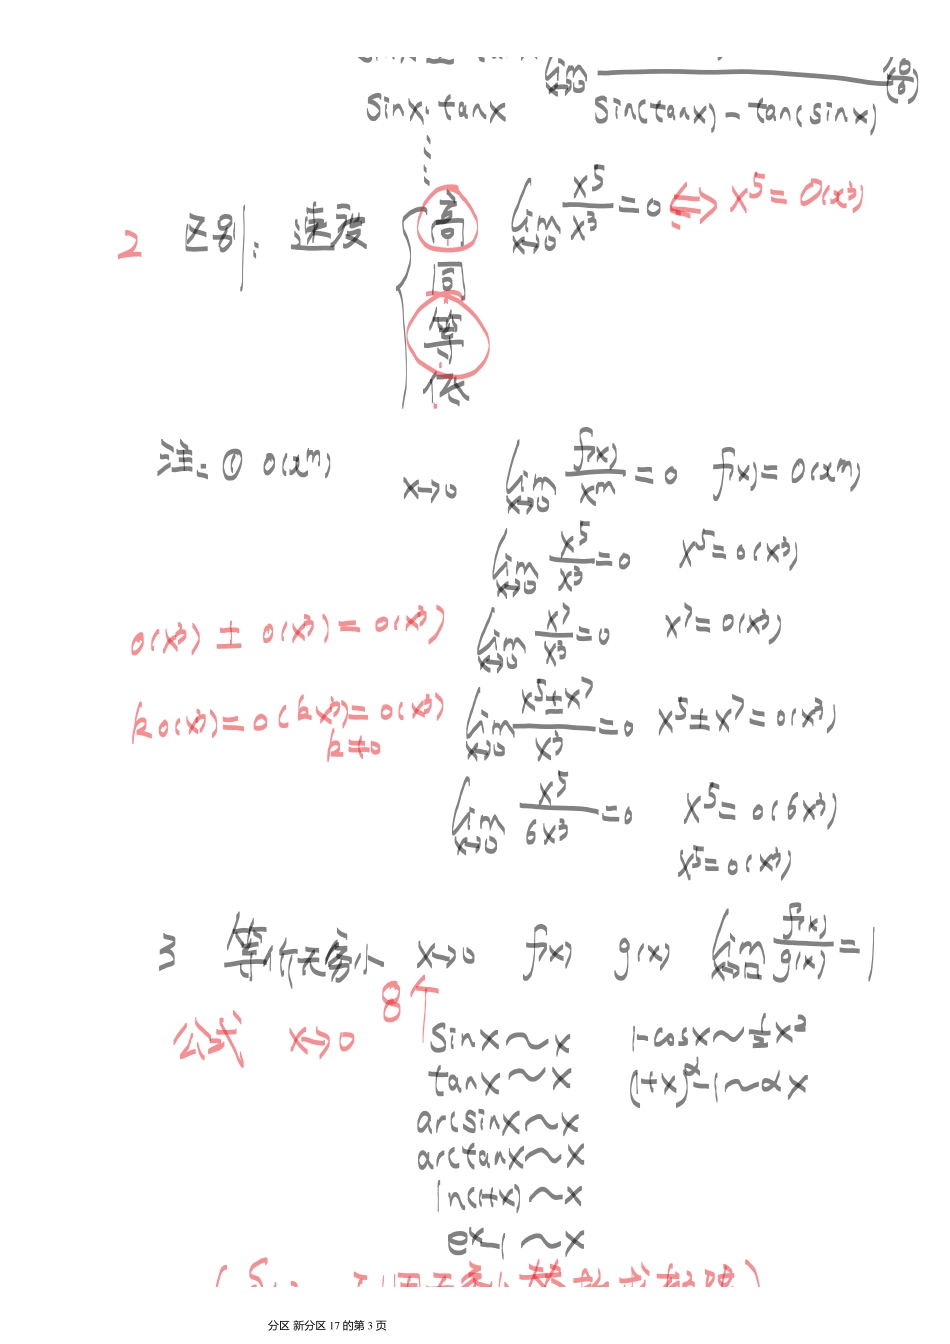 lim x→0 (0/0)
sinx·tanx sin(tanx)-tan(sinx)
⋮
2 区别: 速度 { 高 lim x→0 x⁵/x³ =0 ⇔ x⁵=o(x³)
同
等
低
注: ① o(xᵐ) x→0 lim x→0 f(x)/xᵐ =0 f(x)=o(xᵐ)
lim x→0 x⁵/x³ =0 x⁵=o(x³)
o(x³) ± o(x³) = o(x³) lim x→0 x⁷/x³ =0 x⁷=o(x³)
k o(x³)=o(kx³)=o(x³) lim x→0 x⁵±x⁷/x³ =0 x⁵±x⁷=o(x³)
k≠0
lim x→0 x⁵/6x³ =0 x⁵=o(6x³)
x⁵=o(x³)
3 等价无穷小 x→0 f(x) g(x) lim x→□ f(x)/g(x) =1
8个
公式 x→0 sinx~x 1-cosx~½x²
tanx~x (1+x)^α-1~αx
arcsinx~x
arctanx~x
ln(1+x)~x
eˣ-1~x
分区 新分区 17 的第 3 页